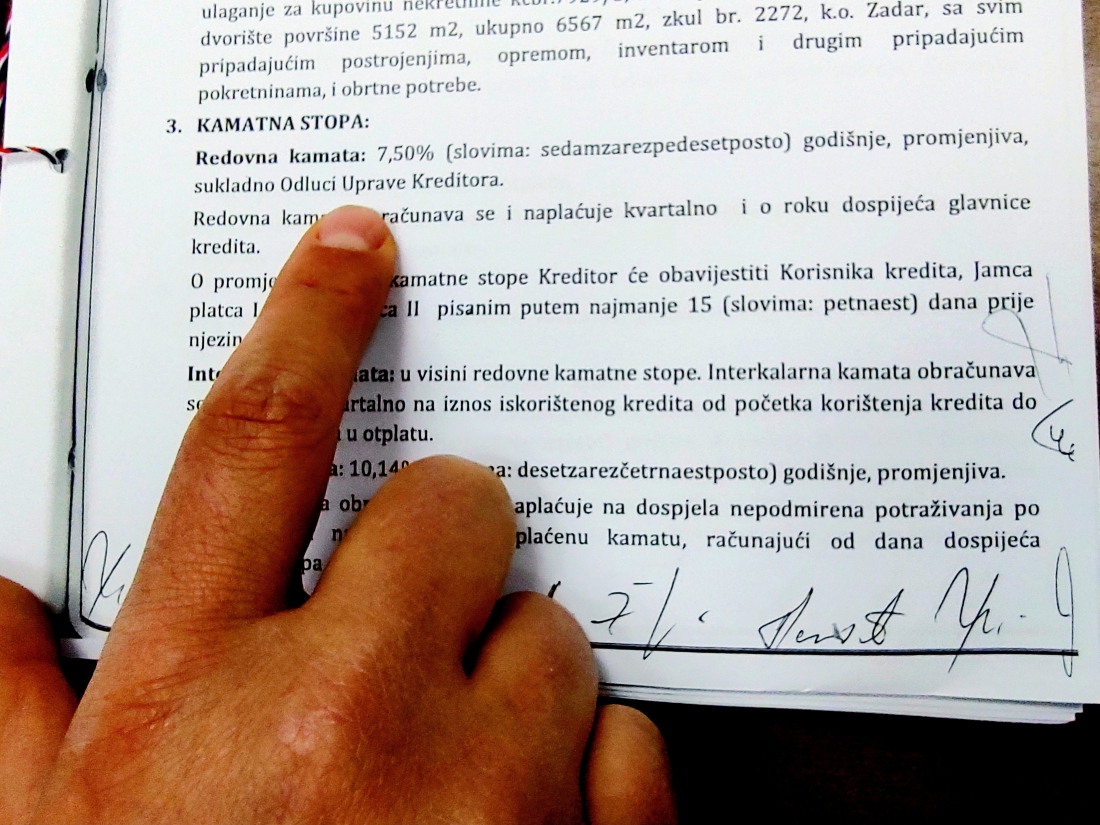 ulaganje za kupovinu nekretnine
dvorište površine 5152 m2, ukupno 6567 m2, zkul br. 2272, k.o. Zadar, sa svim
pripadajućim postrojenjima, opremom, inventarom i drugim pripadajućim
pokretninama, i obrtne potrebe.
3. KAMATNA STOPA:
Redovna kamata: 7,50% (slovima: sedamzarezpedesetposto) godišnje, promjenjiva,
sukladno Odluci Uprave Kreditora.
Redovna računava se i naplaćuje kvartalno i o roku dospijeća glavnice
kredita.
O kamatne stope Kreditor će obavijestiti Korisnika kredita, Jamca
platca II pisanim putem najmanje 15 (slovima: petnaest) dana prije
u visini redovne kamatne stope. Interkalarna kamata obračunava
na iznos iskorištenog kredita od početka korištenja kredita do
u otplatu.
desetzarezčetrnaestposto) godišnje, promjenjiva.
na dospjela nepodmirena potraživanja po
kamatu, računajući od dana dospijeća